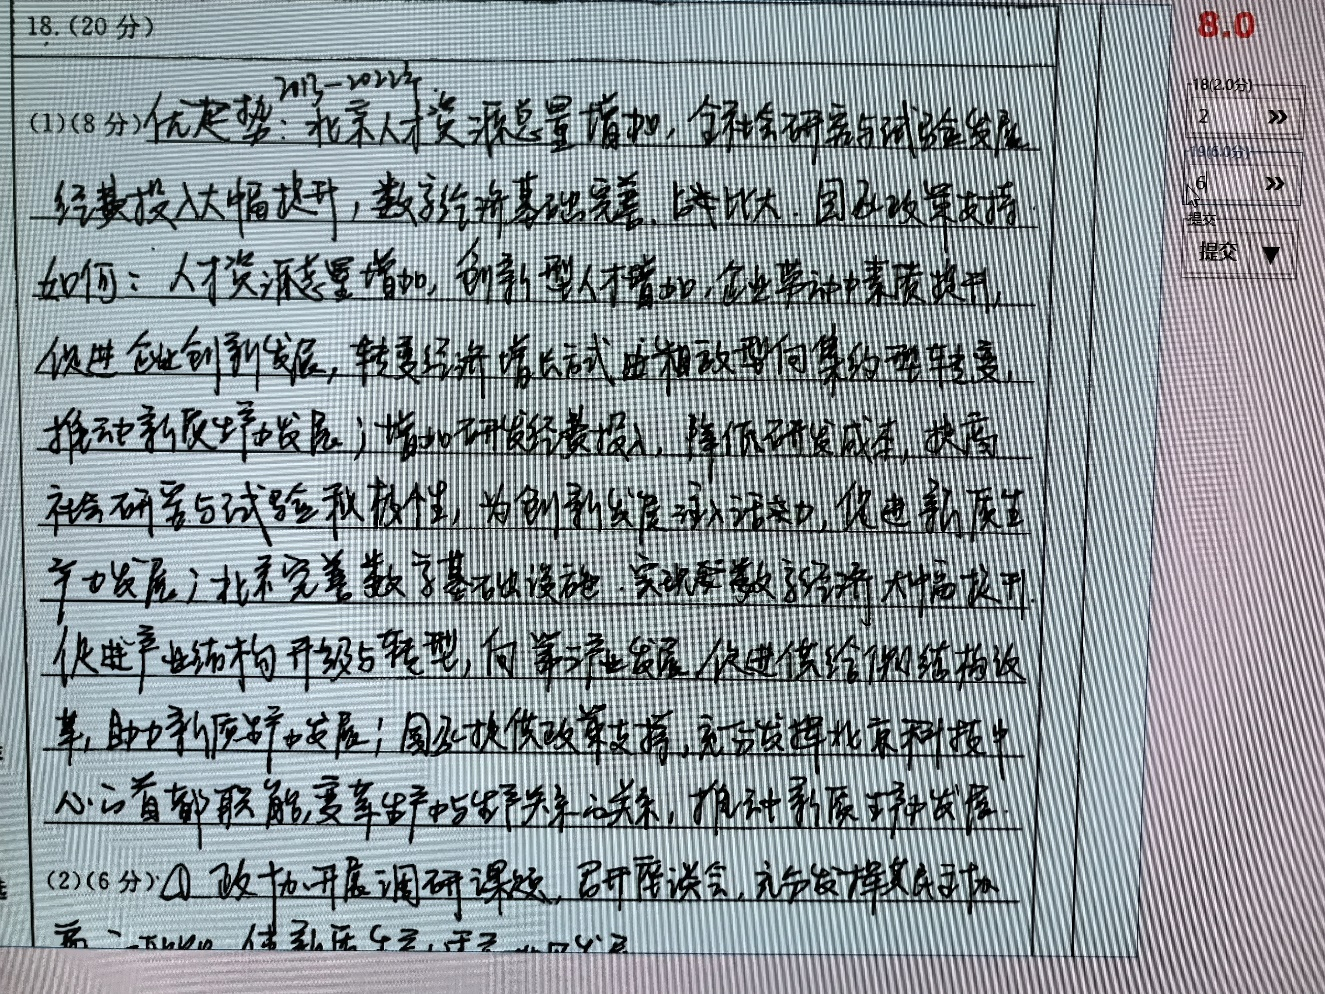 18.(20 分)
8.0
18(2.0分)
2 »
19(6.0分)
6 »
提交
提交 ▼
2013-2022年
(1)(8 分)优走势:北京人才资源总量增加,全社会研究与试验发展
经费投入大幅提升,数字经济基础完善,占比大.国家政策支持.
如何:人才资源总量增加,创新型人才增加,企业劳动力素质提升,
促进企业创新发展,转变经济增长方式由粗放型向集约型转变,
推动新质生产力发展;增加研发经费投入,降低研发成本,提高
社会研究与试验积极性,为创新发展注入活力,促进新质生
产力发展;北京完善数字基础设施.实现数字经济大幅提升.
促进产业结构升级与转型,向第三产业发展,促进供给侧结构改
革,助力新质生产力发展;国家提供政策支持,充分发挥北京科技中
心的首都职能,变革生产力与生产关系的关系,推动新质生产力发展.
(2)(6 分)① 政协开展调研课题,召开座谈会,充分发挥其民主协
商